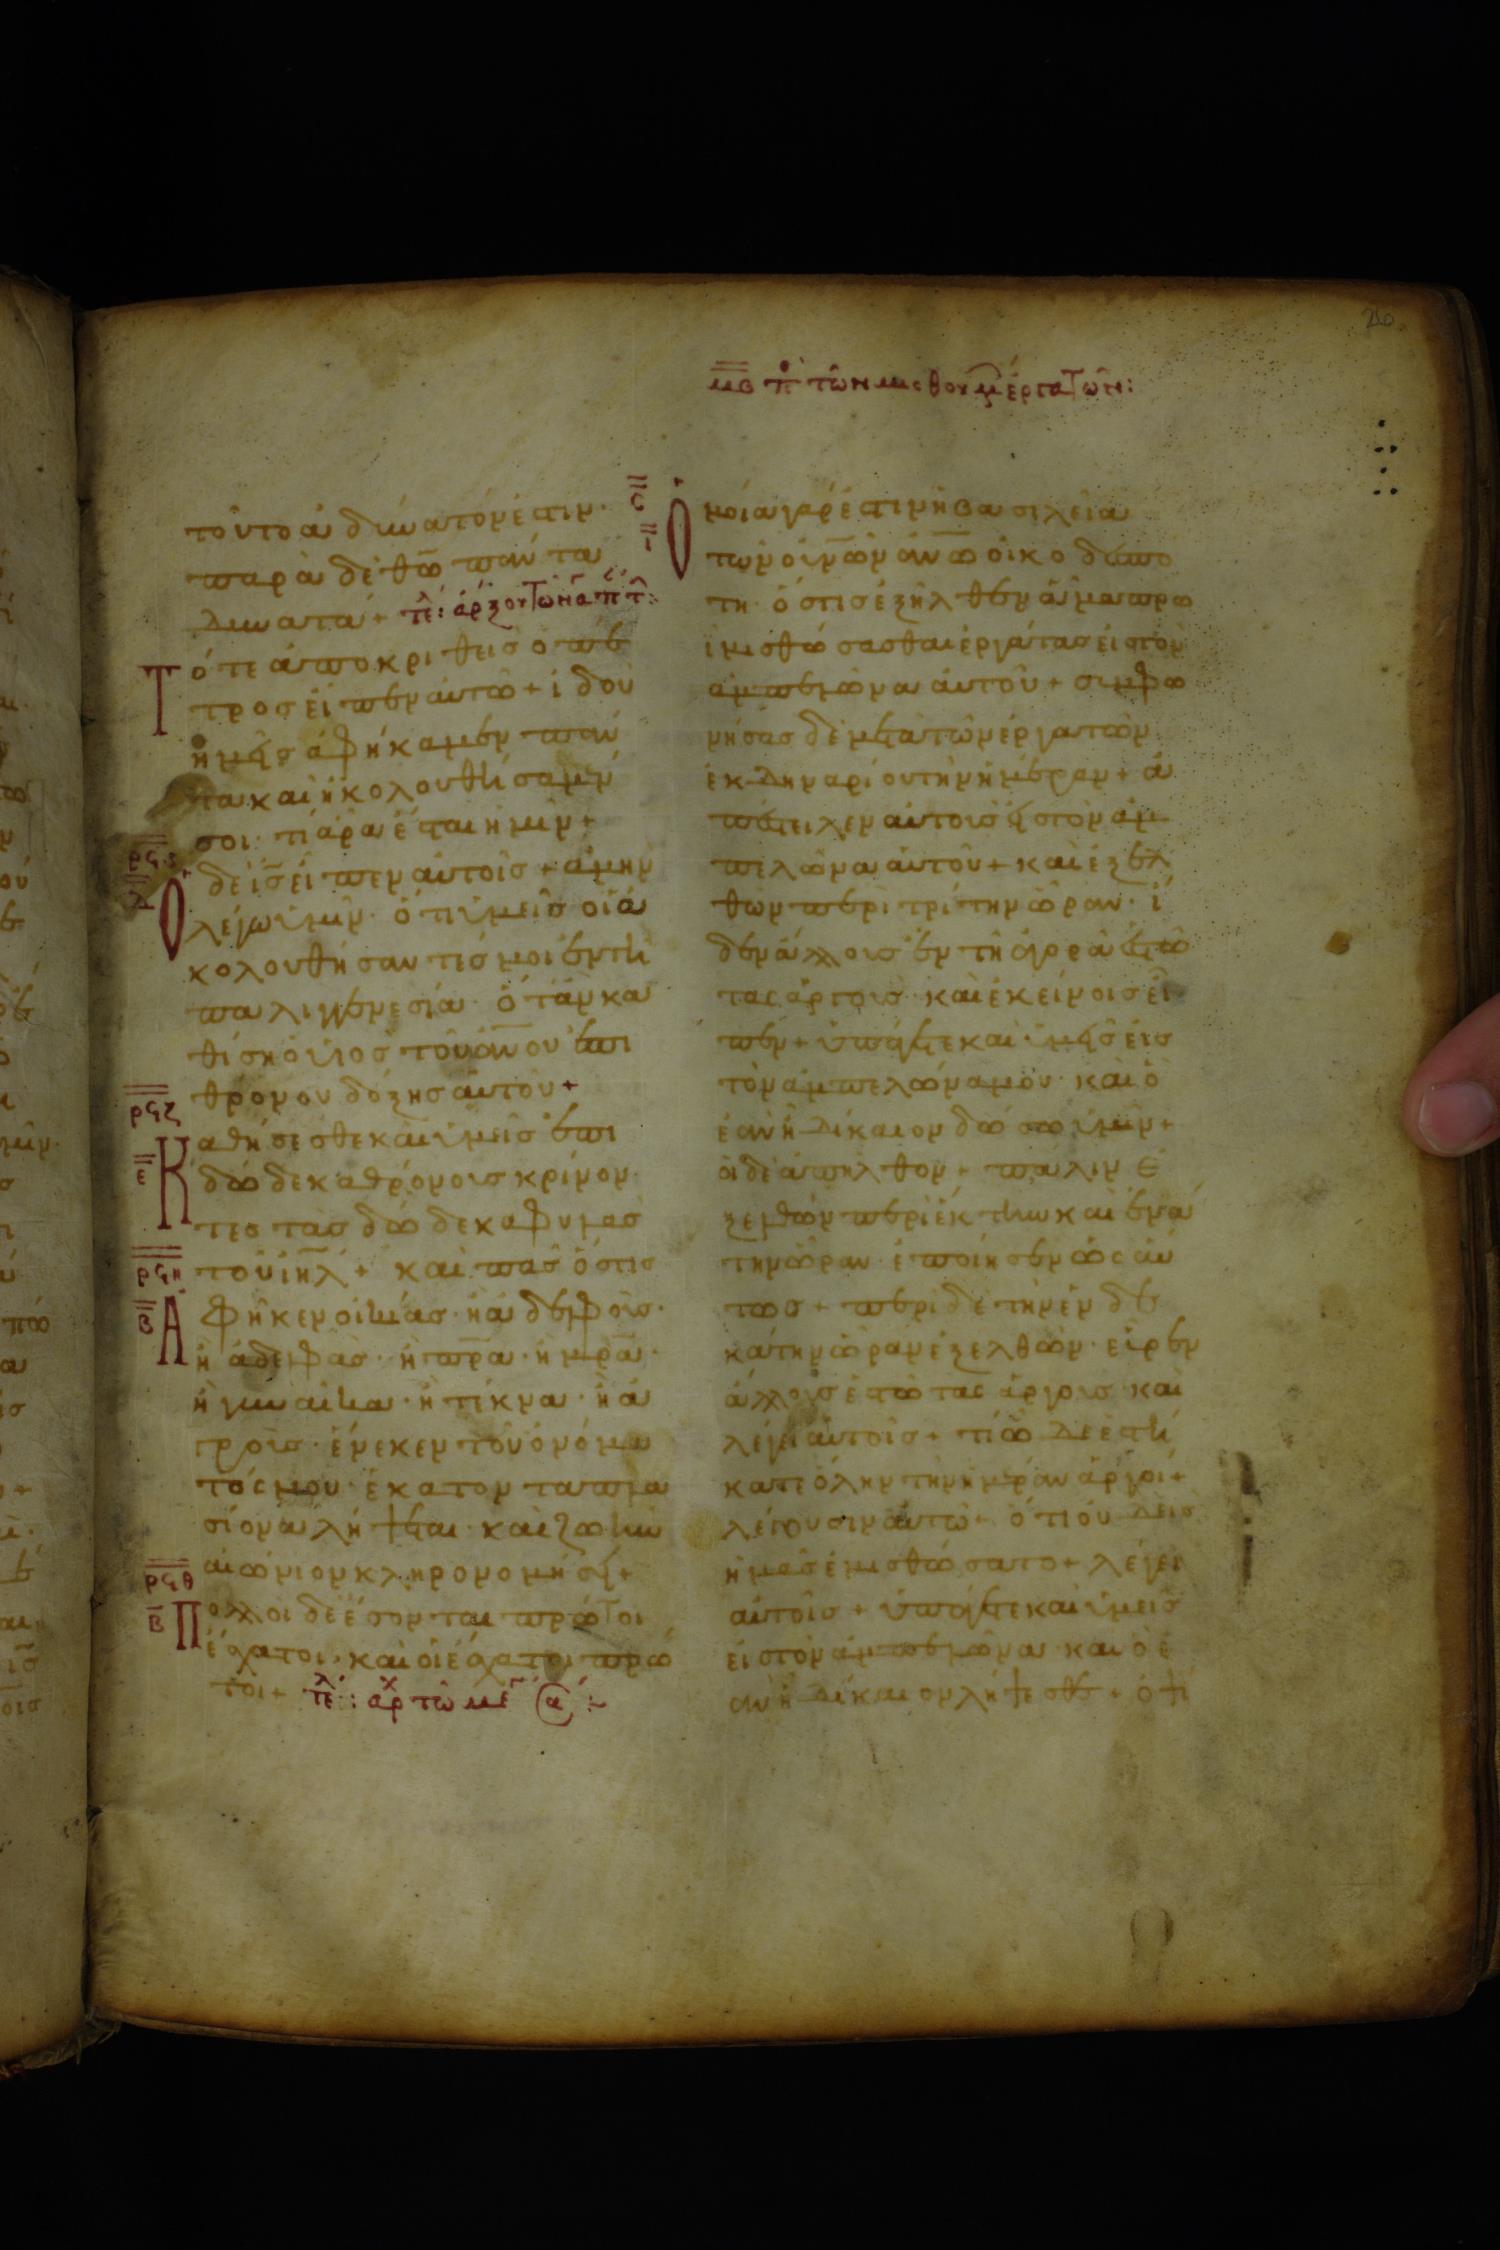 μβ π τῶν μισθουμ ἐργατῶν:
τοῦτο ἀδυνατόν ἐστιν·
παρὰ δὲ θω πάντα
δυνατά +
Τότε ἀποκριθεὶς ὁ πέ
τρος εἶπεν αὐτῶ + ἰδοὺ
ἡμεῖς ἀφήκαμεν πάν
τα καὶ ἠκολουθήσαμέν
σοι· τί ἄρα ἔσται ἡμῖν +
ρϟϛ
Ὁ δὲ ις εἶπεν αὐτοῖς + ἀμὴν
λέγω ὑμῖν· ὅτι ὑμεῖς οἱ ἀ
κολουθήσαντές μοι ἐν τῆ
παλιγγενεσία· ὅταν κα
θίση ὁ υἱὸς τοῦ ανου ἐπὶ
θρόνου δόξης αὐτοῦ +
ρϟζ
ε
Καθήσεσθε καὶ ὑμεῖς ἐπὶ
δώδεκα θρόνους κρίνον
τες τὰς δώδεκα φυλὰς
τοῦ ιηλ + καὶ πᾶς ὅστις
ρϟη
β
Ἀφῆκεν οἰκίας· ἢ ἀδελφοὺς·
ἢ ἀδελφάς· ἢ πρα· ἢ μρα·
ἢ γυναῖκα· ἢ τέκνα· ἢ ἀ
γροὺς· ἕνεκεν τοῦ ὀνόμα
τός μου· ἑκατονταπλα
σίονα λήψεται· καὶ ζωὴν
αἰώνιον κληρονομήσει +
ρϟθ
β
Πολλοὶ δὲ ἔσονται πρῶτοι
ἔσχατοι, καὶ οἱ ἔσχατοι πρῶ
τοι +
ϛ
ι
Ὁμοία γάρ ἐστιν ἡ βασιλεία
τῶν οὐνῶν ανω οἰκοδεσπό
τη· ὅστις ἐξῆλθεν ἅμα πρω
ῒ μισθώσασθαι ἐργάτας εἰς τὸν
ἀμπελῶνα αὐτοῦ + συμφω
νήσας δὲ μετὰ τῶν ἐργατῶν
ἐκ δηναρίου τὴν ἡμέραν + ἀ
πέστειλεν αὐτοὺς εἰς τὸν ἀμ
πελῶνα αὐτοῦ + καὶ ἐξελ
θὼν περὶ τρίτην ὥραν· ἴ
δεν ἄλλους ἐν τῆ ἀγορᾶ ἑστῶ
τας ἀργούς· καὶ ἐκείνοις εἶ
πεν + ὑπάγετε καὶ ὑμεῖς εἰς
τὸν ἀμπελῶνα μου· καὶ ὃ
ἐὰν ἦ δίκαιον δώσω ὑμῖν +
οἱ δὲ ἀπῆλθον + πάλιν ἐ
ξελθὼν περὶ ἕκτην καὶ ἐνά
την ὥραν· ἐποίησεν ὡσαύ
τως + περὶ δὲ τὴν ἑνδε
κάτην ὥραν ἐξελθὼν· εὗρεν
ἄλλους ἑστῶτας ἀργούς· καὶ
λέγει αὐτοῖς + τί ὧδε ἑστή
κατε ὅλην τὴν ἡμέραν ἀργοί +
λέγουσιν αὐτῶ + ὅτι οὐδεὶς
ἡμᾶς ἐμισθώσατο + λέγει
αὐτοῖς + ὑπάγετε καὶ ὑμεῖς
εἰς τὸν ἀμπελῶνα· καὶ ὃ ἐ
ὰν ἦ δίκαιον λήψεσθε + ὀψί